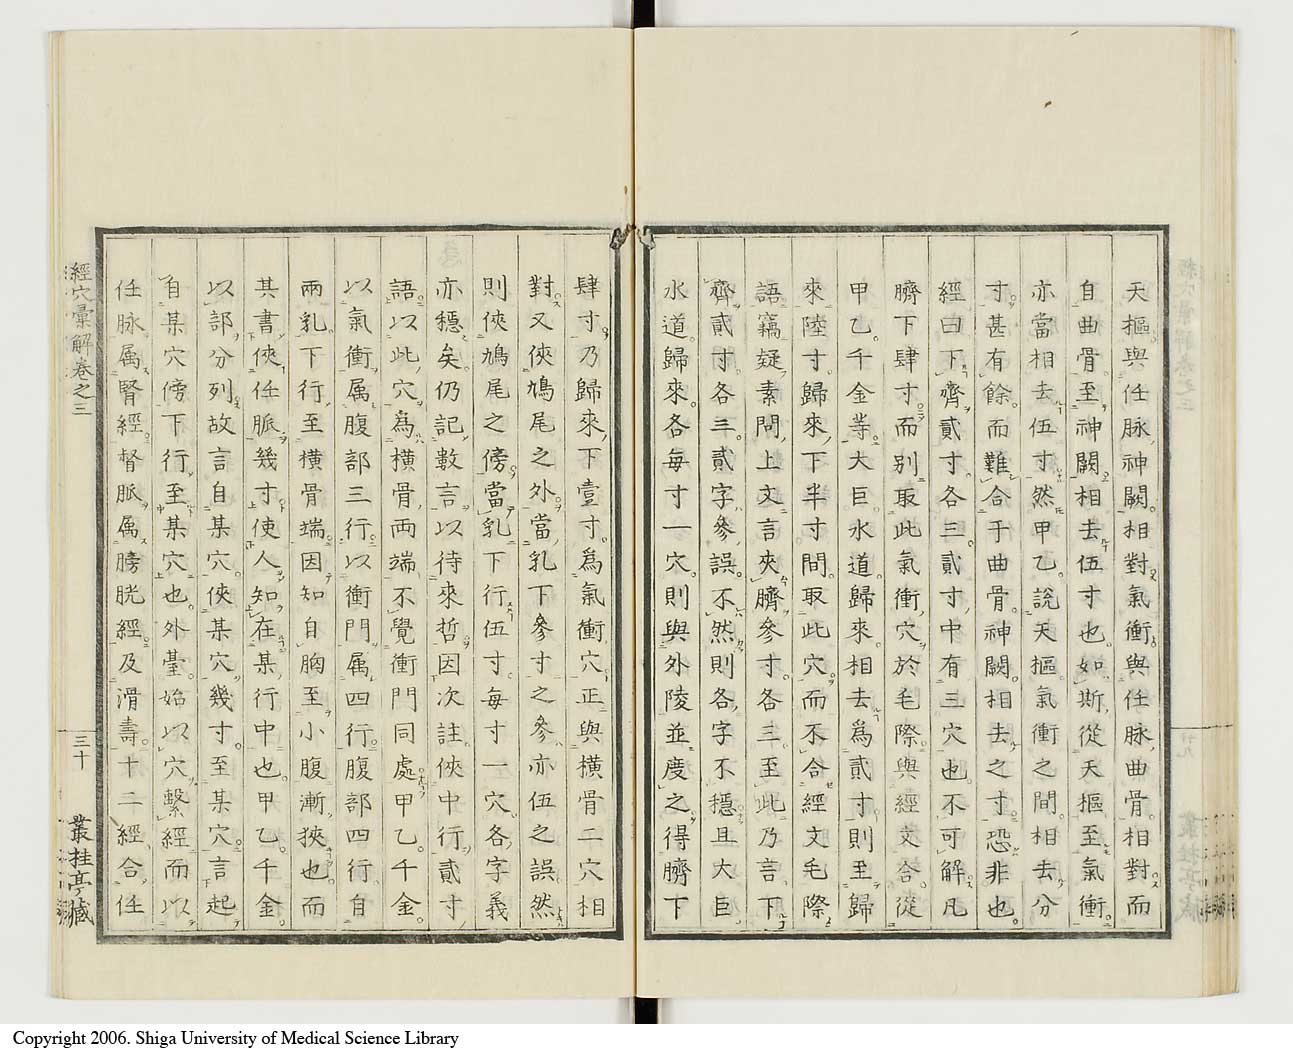 天樞與任脉神闕相對氣衝與任脉曲骨相對而
自曲骨至神闕相去伍寸也如斯從天樞至氣衝
亦當相去伍寸然甲乙說天樞氣衝之間相去分
寸甚有餘而難合于曲骨神闕相去之寸恐非也
經曰下齊貳寸各三貳寸中有三穴也不可解凡
臍下肆寸而别取此氣衝穴於毛際與經文合從
甲乙千金等大巨水道歸來相去爲貳寸則至歸
來陸寸歸來下半寸間取此穴而不合經文毛際
語竊疑素問上文言夾臍參寸各三至此乃言下
齊貳寸各三貳字參誤不然則各字不穩且大巨
水道歸來各每寸一穴則與外陵並度之得臍下
肆寸乃歸來下壹寸爲氣衝穴正與横骨二穴相
對又俠鳩尾之外當乳下參寸之參亦伍之誤然
則俠鳩尾之傍當乳下行伍寸每寸一穴各字義
亦穩矣仍記數言以待來哲因次註俠中行貳寸
語以此穴爲横骨兩端不覺衝門同處甲乙千金
以氣衝属腹部三行以衝門属四行腹部四行自
兩乳下行至横骨端因知自胸至小腹漸狹也而
其書俠任脈幾寸使人知在某行中也甲乙千金
以部分列故言自某穴俠某穴幾寸至某穴言起
自某穴傍下行至某穴也外臺始以穴繫經而以
任脉属腎經督脈属膀胱經及滑壽十二經合任
經穴彙解卷之三
三十
叢桂亭藏
Copyright 2006. Shiga University of Medical Science Library